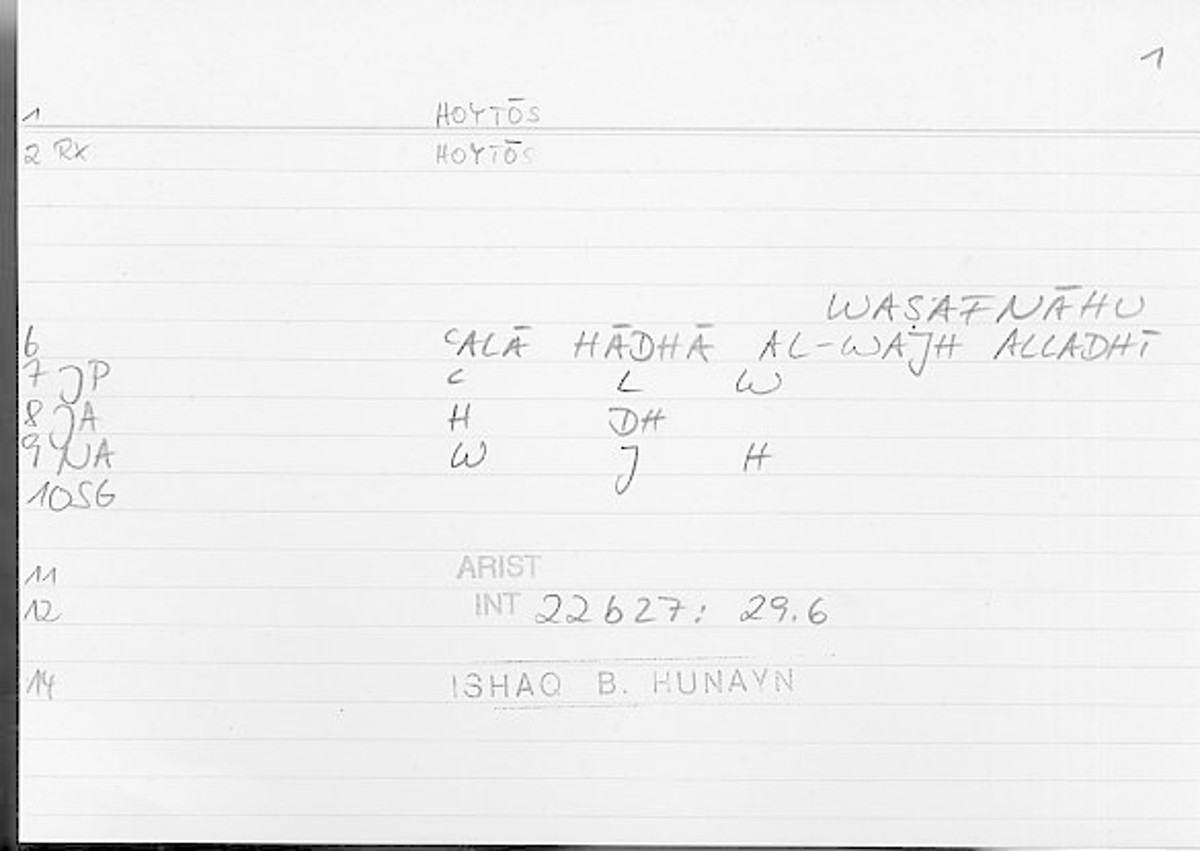 1
1 HOYTŌS
2 RX HOYTŌS
WAṢAFNĀHU
6 ʿALĀ HĀDHĀ AL-WAJH ALLADHĪ
7 JP ʿ L W
8 JA H DH
9 NA W J H
10SG
11 ARIST
12 INT 22b27: 29.6
14 ISHAQ B. HUNAYN